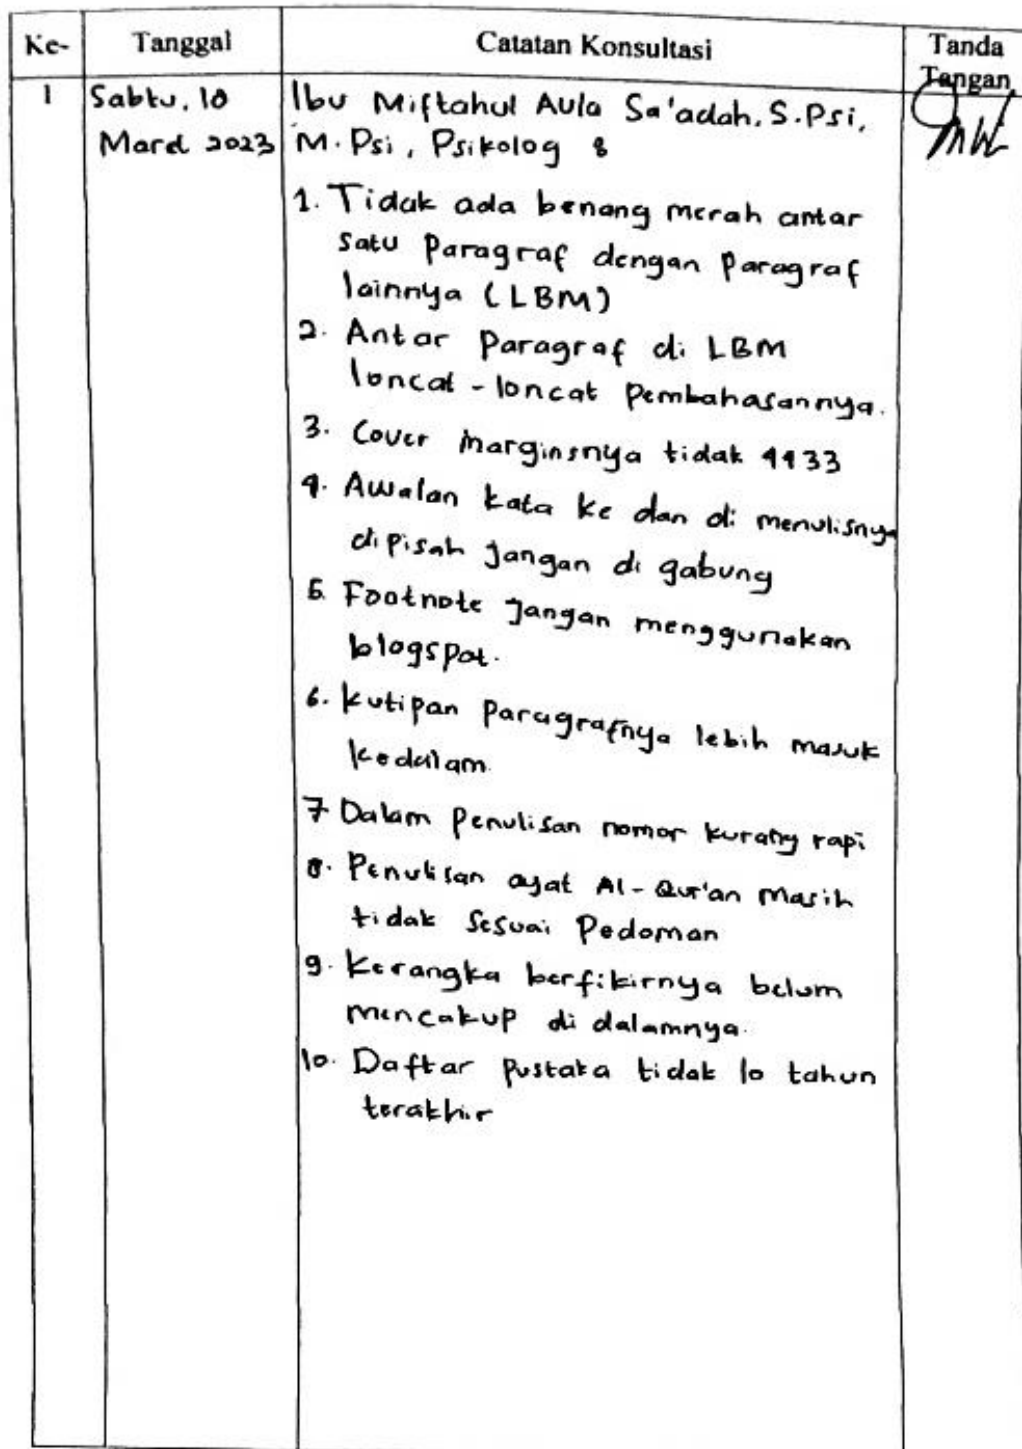 Ke- Tanggal Catatan Konsultasi Tanda
Tangan
1 Sabtu, 18 Ibu Miftahul Aula Sa'adah, S.Psi,
Maret 2023 M.Psi, Psikolog :
1. Tidak ada benang merah antar
satu Paragraf dengan Paragraf
lainnya (LBM)
2. Antar Paragraf di LBM
loncat-loncat Pembahasannya.
3. Cover marginsnya tidak 4433
4. Awalan kata ke dan di menulisnya
dipisah jangan di gabung
5. Footnote jangan menggunakan
blogspot.
6. Kutipan Paragrafnya lebih masuk
kedalam.
7 Dalam Penulisan nomor kurang rapi
8. Penulisan ayat Al-Qur'an Masih
tidak Sesuai Pedoman
9. Kerangka berfikirnya belum
mencakup di dalamnya.
10. Daftar Pustaka tidak 10 tahun
terakhir